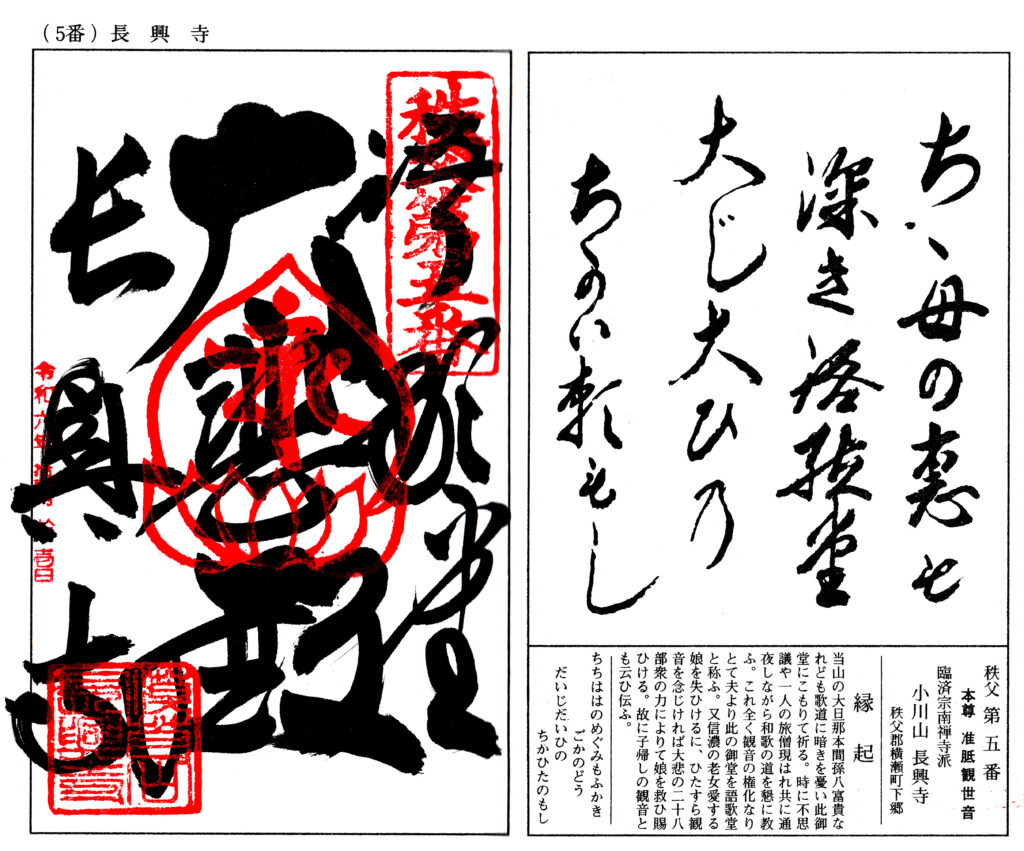 (5番) 長興寺
秩父第五番
大悲殿
語歌堂
長興寺
令和六年
ちゝ母の恵も
深き語歌堂
大じ大ひの
ちかひ頼もし
秩父第五番
本尊 准胝観世音
臨済宗南禅寺派
小川山 長興寺
秩父郡横瀬町下郷
縁起
当山の大旦那本間孫八富貴な
れども歌道に暗きを憂い此御
堂にこもりて祈る。時に不思
議や一人の旅僧現はれ共に通
夜しながら和歌の道を懇に教
ふ。これ全く観音の権化なり
とて夫より此の御堂を語歌堂
と称ふ。又信濃の老女愛する
娘を失ひけるに、ひたすら観
音を念じければ大悲の二十八
部衆の力によりて娘を救ひ賜
ひける。故に子帰しの観音と
も云ひ伝ふ。
ちちははのめぐみもふかき
ごかのどう
だいじだいひの
ちかひたのもし